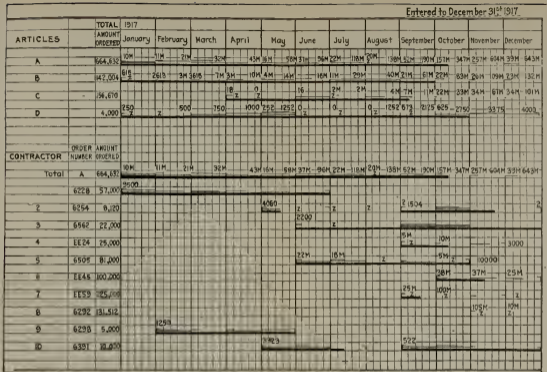 Entered to December 31st 1917.
ARTICLES TOTAL AMOUNT ORDERED 1917
January February March April May June July August September October November December
A 664,632 10M 11M 21M 32M 43M 15M 58M 37M 96M 22M 118M 20M 138M 52M 190M 157M 347M 257M 604M 39M 643M
B 142,004 615 2615 3M 3615 7M 3M 10M 4M 14M 18M 11M 29M 40M 21M 61M 22M 83M 26M 109M 23M 132M
C 18 0 16 2M 4M 7M 11M 22M 33M 34M 67M 34M 101M
D 4,000 250 500 750 1000 252 1252 0 0 1252 873 2125 625 2750 3375 4000
CONTRACTOR ORDER NUMBER AMOUNT ORDERED
Total A 664,632 10M 11M 21M 32M 43M 15M 58M 37M 96M 22M 118M 20M 138M 52M 190M 157M 347M 257M 604M 39M 643M
6228 57,000 9500
2 6254 Z Z Z Z 1504 Z
3 6562 22,000 2200
4 EE24 25,000 5M 10M Z 3000
5 6505 81,000 22M 18M Z 5M Z 10000
6 EE46 100,000 38M 37M 25M
7 EE59 125,000 25M 100M Z Z
8 6292 131,512 Z Z
9 6298 5,000 1250
10 6301 10,000 522